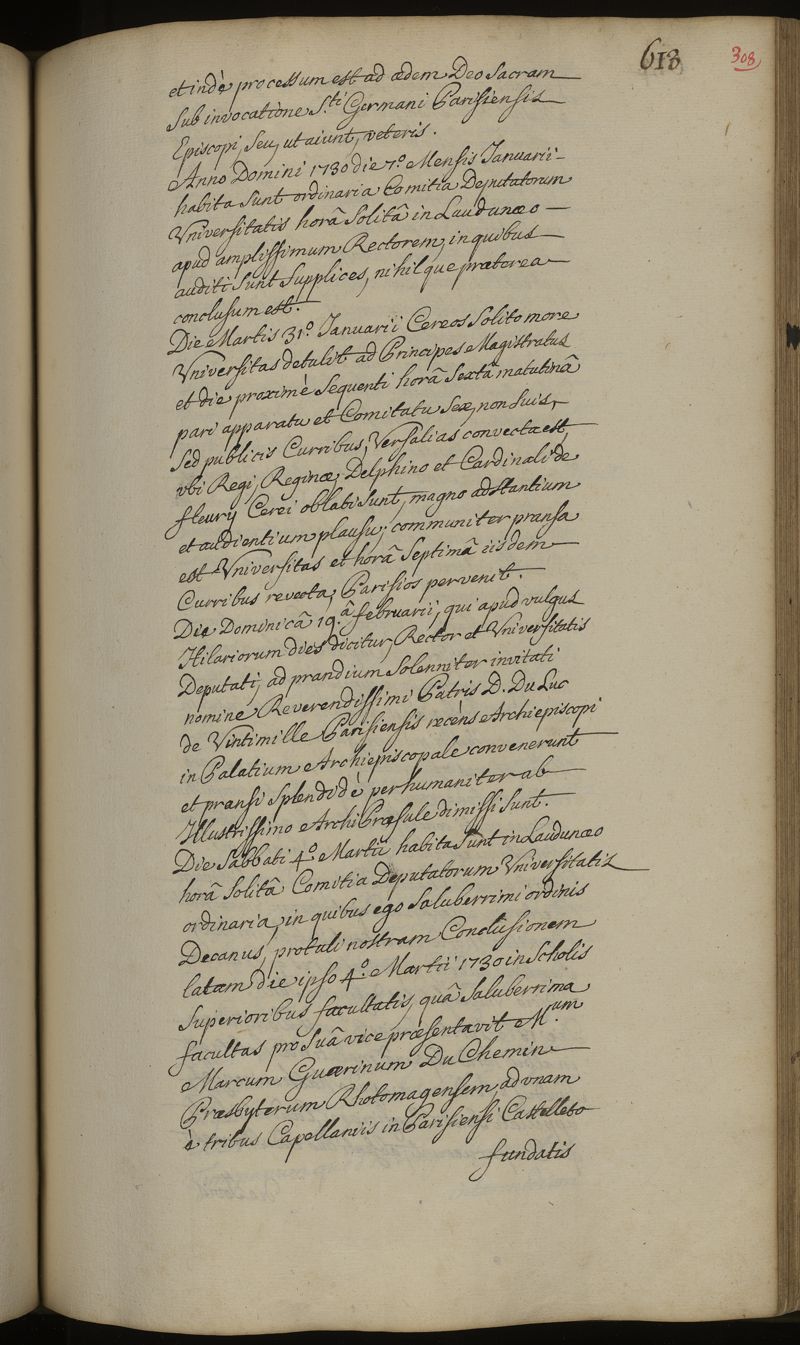 618 308
et indè processum est ad ædem Deo Sacram
Sub invocatione S.ti Germani Parisiensis
Episcopi, Seu, ut aiunt, veteris.
Anno Domini 1730 die 7.o Mensis Januarii
habita Sunt ordinaria Comitia Deputatorum
Universitatis horâ Solitâ in Laudunæo
apud amplissimum Rectorem, in quibus
auditi Sunt Supplices, nihilque præterea
conclusum est.
Die Martis 31.o Januarii Cereos Solito more
Universitas detulit ad Principes Magistratus
et die proximè Sequenti horâ Sextâ matutinâ
pari apparatu et Comitatu Seu, non Suis,
Sed publicis Curribus, Versalias convecta est,
ubi Regi, Reginæ, Delphino et Cardinali de
fleury Cerei oblati Sunt, magno adstantium
et audientium plausu; communiter pransa
est Universitas et horâ Septimâ iisdem
Curribus revecta, Parisios pervenit.
Die Dominicâ 19.â februarii, qui apud vulgus
Hilariorum dies dicitur, Rector et Universitatis
Deputati, ad prandium Solenniter invitati
nomine Reverendissimi Patris D. Du Luc
de Vintimille Parisiensis recèns Archiepiscopi
in Palatium Archiepiscopale convenerunt
et pransi Splendidè perhumaniter ab
Illustrissimo ArchiPræsule dimissi Sunt.
Die Sabbati 4.o Martii habita Sunt in Laudunæo
horâ Solitâ Comitia Deputatorum Universitatis
ordinaria, in quibus ego Saluberrimi ordinis
Decanus, protuli nostram Conclusionem
latam die ipso 4.o Martii 1730 in Scholis
Superioribus facultatis, quâ Saluberrima
facultas pro Suâ vice præsentavit M.um
Marcum Guerinum Du Chemin
Præsbyterum Rhotomagensem, ad unam
è tribus Capellaniis in Parisiensi Castelleto
fundatis